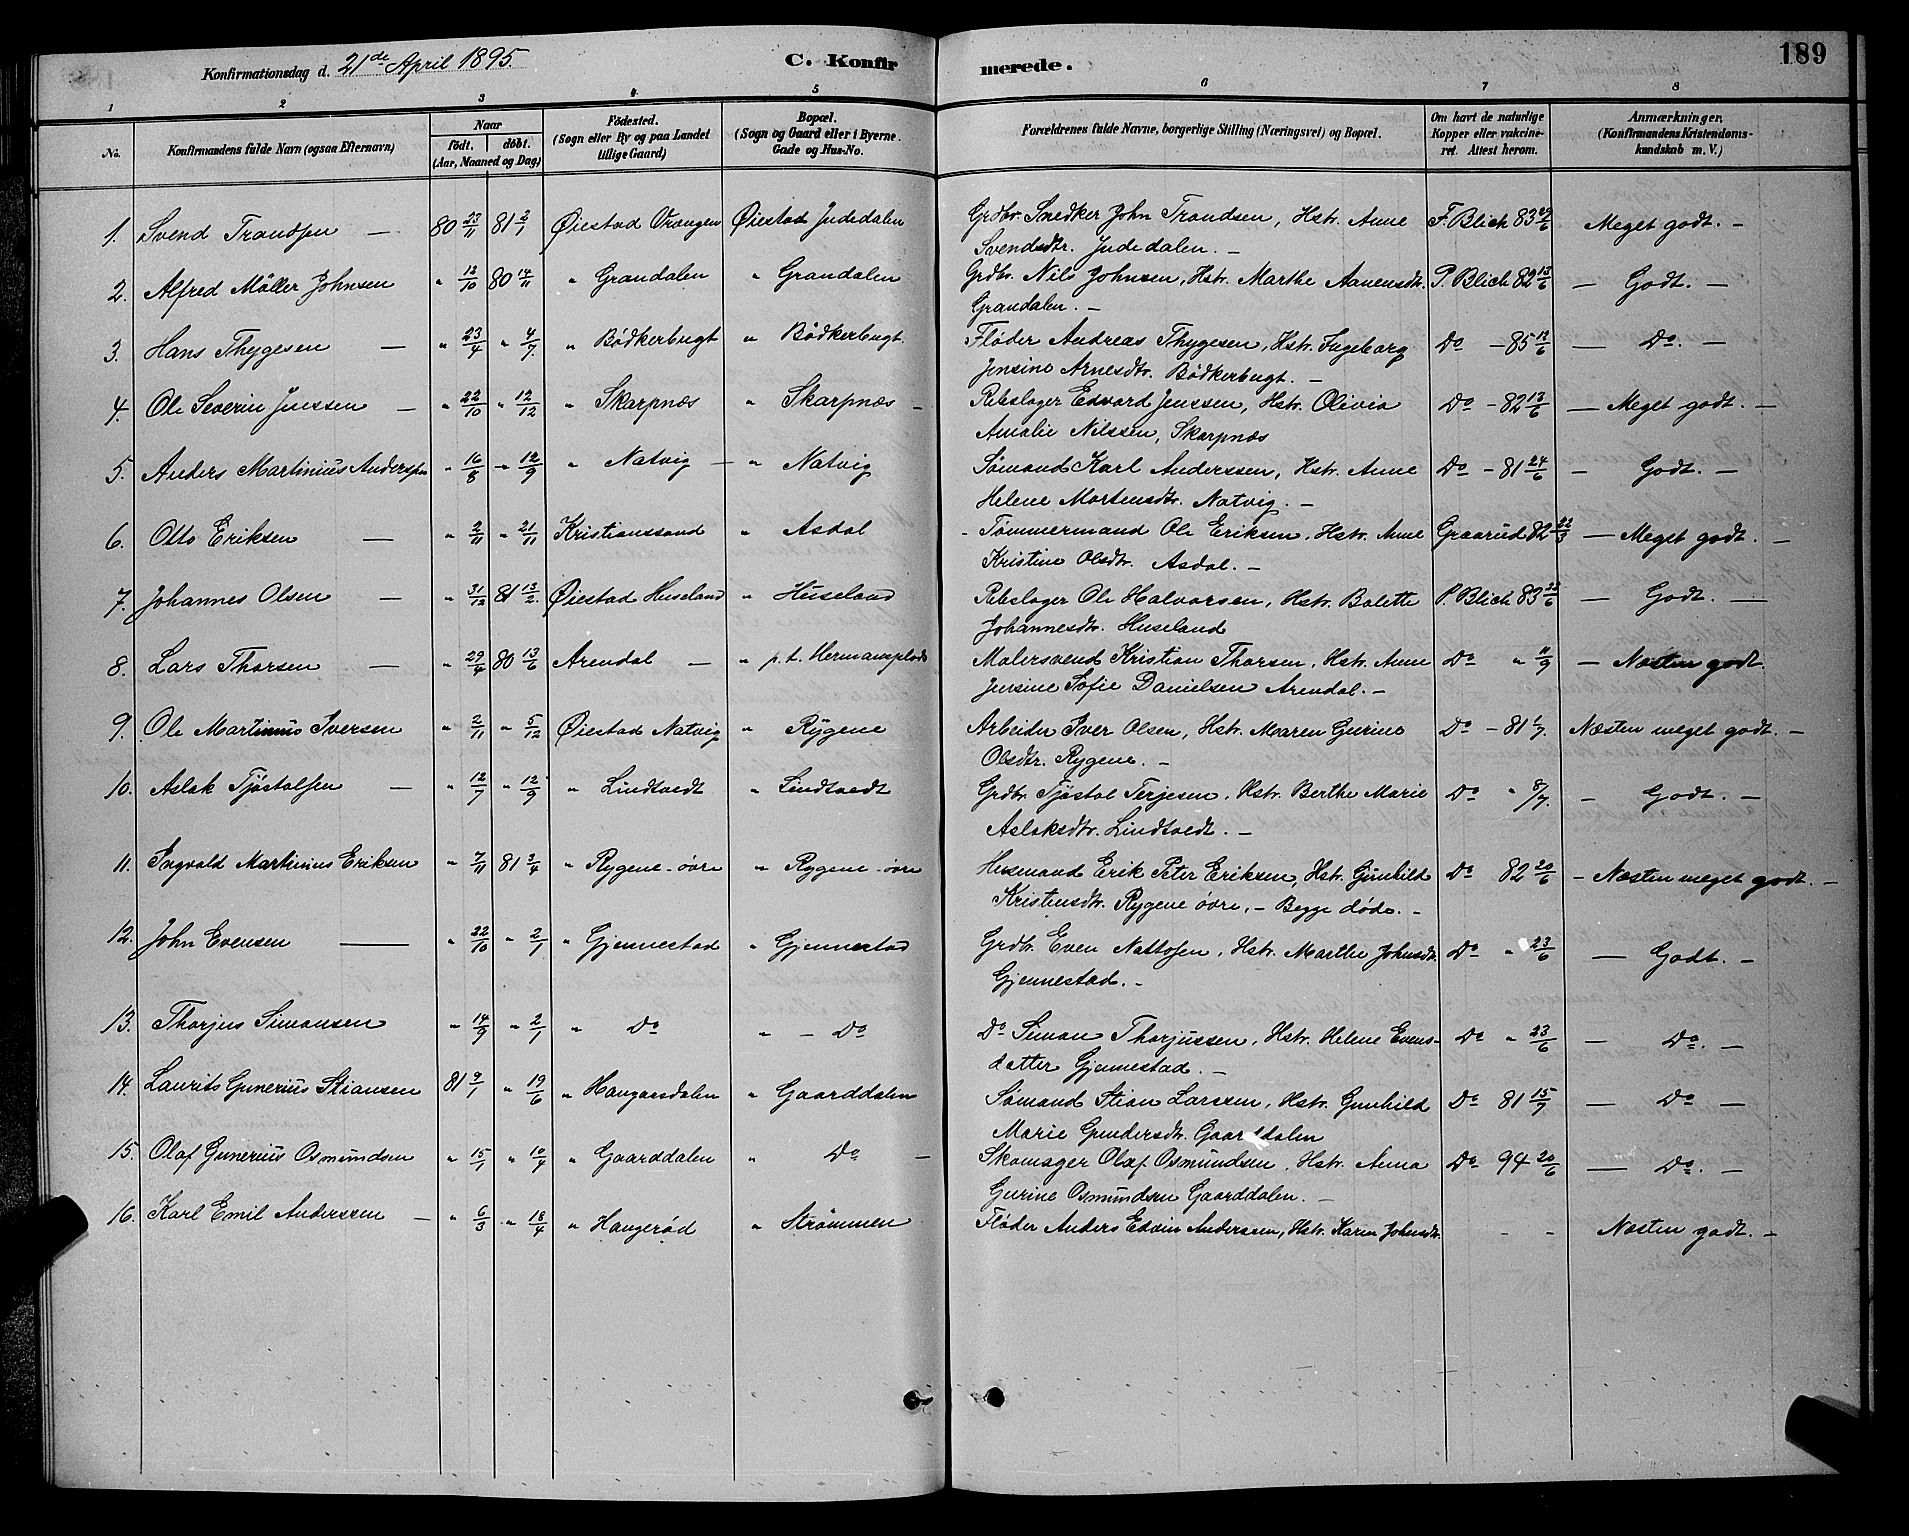 Konfirmationsdag d. 21de April 1895. C. Konfir merede. 189
1 2 3 4 5 6 7 8
No. Konfirmandens fulde Navn (ogsaa Efternavn) Naar født. døbt. (Aar, Maaned og Dag) Fødested. (Sogn eller By og paa Landet tillige Gaard) Bopæl. (Sogn og Gaard eller i Byerne Gade og Hus-No. Forældrenes fulde Navne, borgerlige Stilling (Næringsvei) og Bopæl. Om havt de naturlige Kopper eller vakcineret. Attest herom. Anmærkninger. (Konfirmandens Kristendomskundskab m. V.)
1. Svend Trandsen — 80 23/11 81 2/1 Øiestad Vrangen Øiestad Judedalen Grdbr. Snedker John Trandsen, Hstr. Anne F. Blich 83 Meget godt. —
Svendsdtr. Judedalen. —
2. Alfred Möller Johnsen " 12/10 80 14/11 " Grandalen " Grandalen Grdbr. Nils Johnsen, Hstr. Marthe Aanensdtr. P. Blich 82 13/6 — Godt. —
Grandalen. —
3. Hans Thygesen — " 23/4 " 4/7 " Bödkerbugt " Bödkerbugt Fløder Andreas Thygesen, Hstr. Ingeborg Do — 85 12/6 — Do. —
Jensine Arnesdtr. Bödkerbugt. —
4. Ole Severin Jenssen — " 22/10 " 12/12 " Skarpnæs " Skarpnæs — Rebslager Edvard Jenssen, Hstr. Olivia Do — 82 13/6 — Meget godt. —
Amalie Nilssen, Skarpnæs
5. Anders Martinius Anderssen " 16/8 " 12/9 " Natvig — " Natvig Sømand Karl Anderssen, Hstr. Anne Do — 81 24/6 — Godt. —
Helene Mortensdtr. Natvig. —
6. Otto Eriksen — " 2/11 " 21/11 Kristianssand " Asdal - Tømmermand Ole Eriksen, Hstr. Anne Graarud 82 22/3 — Meget godt. —
Kristine Olsdtr. Asdal. —
7. Johannes Olsen — " 31/12 81 13/2 Øiestad Huseland " Huseland Rebslager Ole Halvorsen, Hstr. Bolette P. Blich 83 — Godt. —
Johannesdtr. Huseland
8. Lars Thorsen — " 29/4 80 13/6 Arendal — " p. t. Hermansplads Malersvend Kristian Thorsen, Hstr. Anne Do " 11/9 — Næsten godt.
Jensine Sofie Danielsen Arendal. —
9. Ole Martinius Iversen " 2/11 " 5/12 Øiestad Natvig " Rygene Arbeider Iver Olsen, Hstr. Maren Gurine Do — 81 1/7 Næsten meget godt. —
Olsdtr. Rygene. —
10. Aslak Tjöstolfsen — " 12/7 " 12/9 " Lindtvedt " Lindtvedt Grdbr. Tjöstol Terjesen, Hstr. Berthe Marie Do " 8/7. — Godt. —
Aslaksdtr. Lindtvedt. —
11. Ingvald Martinius Eriksen " 7/11 81 3/4 " Rygene - øvre " Rygene - øvre Husmand Erik Peter Eriksen, Hstr. Gunhild Do 82 20/6 - Næsten meget godt. —
Kristensdtr. Rygene øvre, — Begge døde. —
12. John Evensen — " 22/10 " 2/1 " Gjennestad " Gjennestad Grdbr. Even Nattosen, Hstr. Marthe Johnsdtr. Do " 23/6 — Godt. —
Gjennestad. —
13. Thorjus Simonsen " 14/9 " 2/1 " Do " — Do Do Simon Thorjussen, Hstr. Helene Evens- Do " 23/6 — Do. —
datter Gjennestad. —
14. Laurits Gunerius Stiansen 81 9/1 " 19/6 " Haugaasdalen " Gaarddalen Sømand Stian Larssen, Hstr. Gunhild Do 81 15/7 — Do —
Marie Gundersdtr. Gaarddalen
15. Olaf Gunerius Osmundsen " 15/1 " 10/4 " Gaarddalen " Do — Skomager Olaf Osmundsen, Hstr. Anna Do 94 20/6 — Do. —
Gurine Osmundsen Gaarddalen. —
16. Karl Emil Anderssen — " 6/3 " 18/4 " Haugerød " Strømmen Fløder Anders Edvin Anderssen, Hstr. Karen Johnsdtr. - - Næsten godt. —